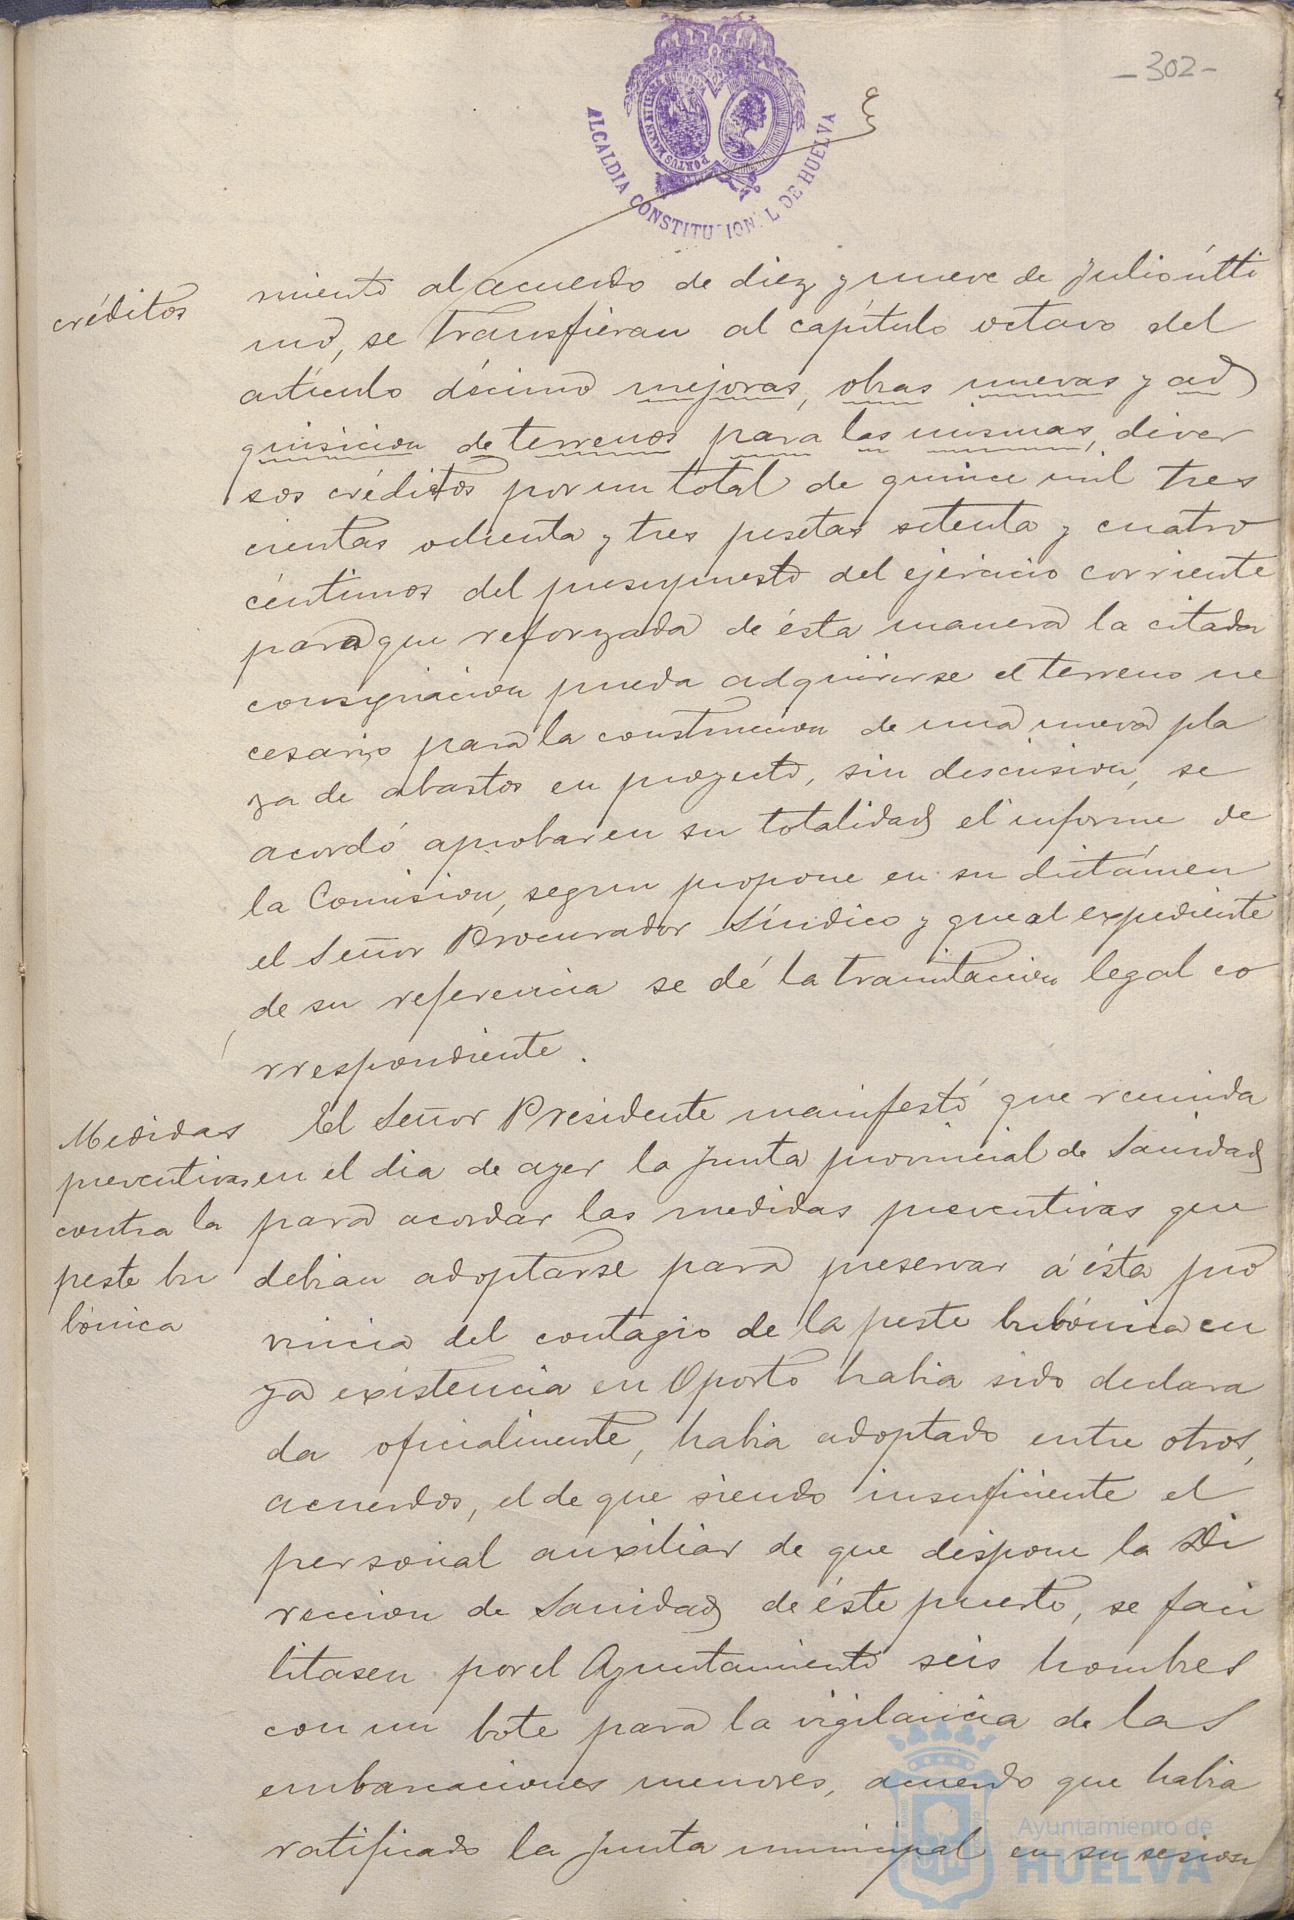 -302-
ALCALDIA CONSTITUCIONAL DE HUELVA
créditos
miento al acuerdo de diez y nueve de Julio últi
mo, se transfieran al capítulo octavo del
artículo décimo mejoras, obras nuevas y ad
quisicion de terrenos para las mismas, diver
sos créditos por un total de quince mil tres
cientas ochenta y tres pesetas setenta y cuatro
céntimos del presupuesto del ejercicio corriente
para que reforzada de ésta manera la citada
consignacion pueda adquirirse el terreno ne
cesario para la construccion de una nueva pla
za de abastos en proyecto, sin descusion, se
acordó aprobar en su totalidad el informe de
la Comision, segun propone en su dictámen
el Señor Procurador Síndico y que al expediente
de su referencia se dé la tramitacion legal co
rrespondiente.
Medidas
preventivas
contra la
peste bu
bónica
El Señor Presidente manifestó que reunida
en el dia de ayer la Junta provincial de Sanidad
para acordar las medidas preventivas que
debian adoptarse para preservar á ésta pro
vincia del contagio de la peste bubónica cu
ya existencia en Oporto habia sido declara
da oficialmente, habia adoptado entre otros,
acuerdos, el de que siendo insuficiente el
personal auxiliar de que dispone la Di
reccion de Sanidad de éste puerto, se faci
litasen por el Ayuntamiento seis hombres
con un bote para la vigilancia de las
embarcaciones menores, acuerdo que habia
ratificado la Junta municipal en su sesion
Ayuntamiento de
HUELVA